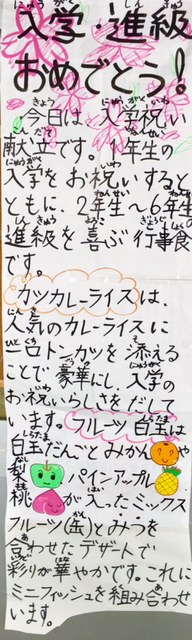 入学・進級
おめでとう!
今日は入学祝い
献立です。1年生の
入学をお祝いすると
ともに、2年生~6年生の
進級を喜ぶ行事食
です。
カツカレーライスは、
人気のカレーライスに
一口トンカツを添える
ことで豪華にし、入学の
お祝いらしさをだして
います。フルーツ白玉は
白玉だんごとみかんや
梨パインアップル
桃が入ったミックス
フルーツ(缶)とみつを
合わせたデザートで
彩りが華やかです。これに
ミニフィッシュを組み合わせ
います。